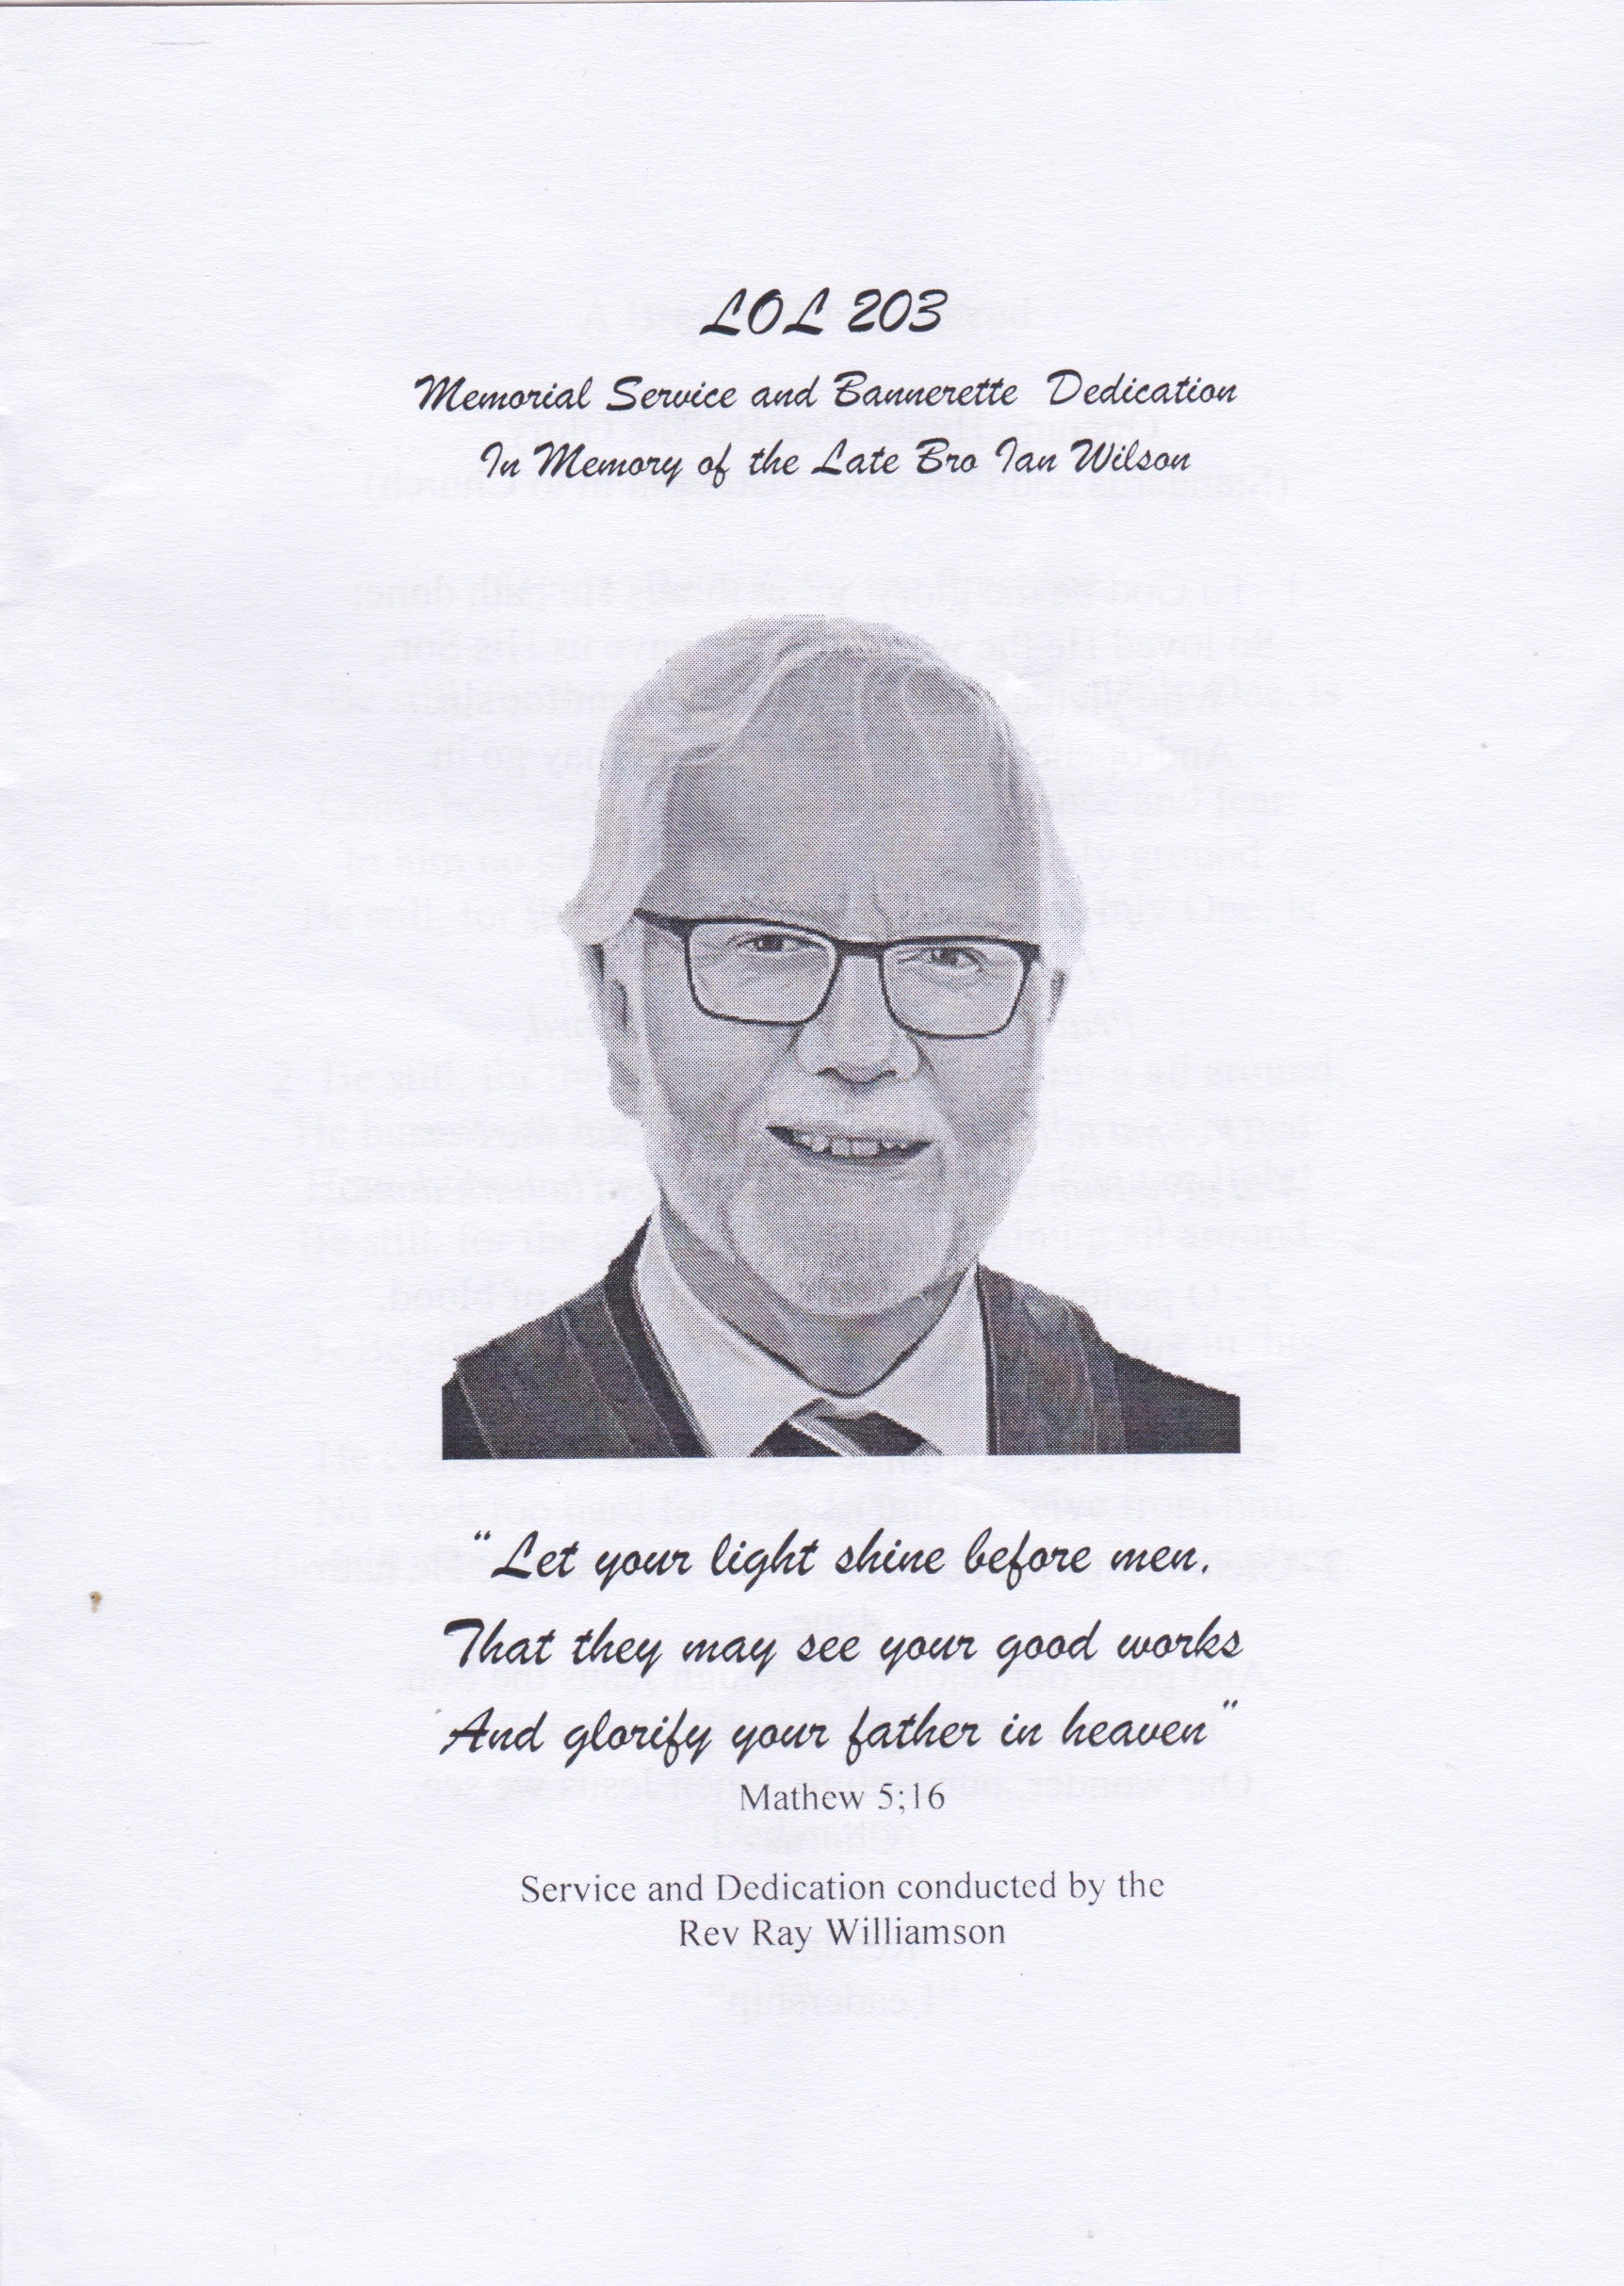 LOL 203
Memorial Service and Bannerette Dedication
In Memory of the Late Bro Ian Wilson
"Let your light shine before men,
That they may see your good works
And glorify your father in heaven"
Mathew 5;16
Service and Dedication conducted by the
Rev Ray Williamson